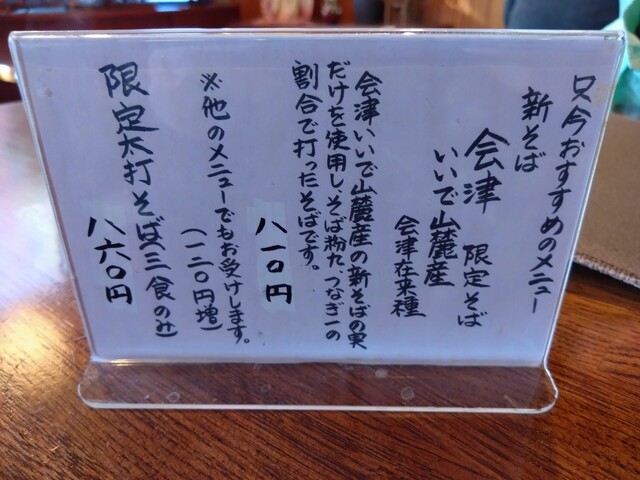 只今おすすめのメニュー
新そば
会津 限定そば
いいで山麓産
会津在来種
会津いいで山麓産の新そばの実
だけを使用し、そば粉九、つなぎ一の
割合で打ったそばです。
八一〇円
※他のメニューでもお受けします。
(一二〇円増)
限定太打そば(三食のみ)
八六〇円